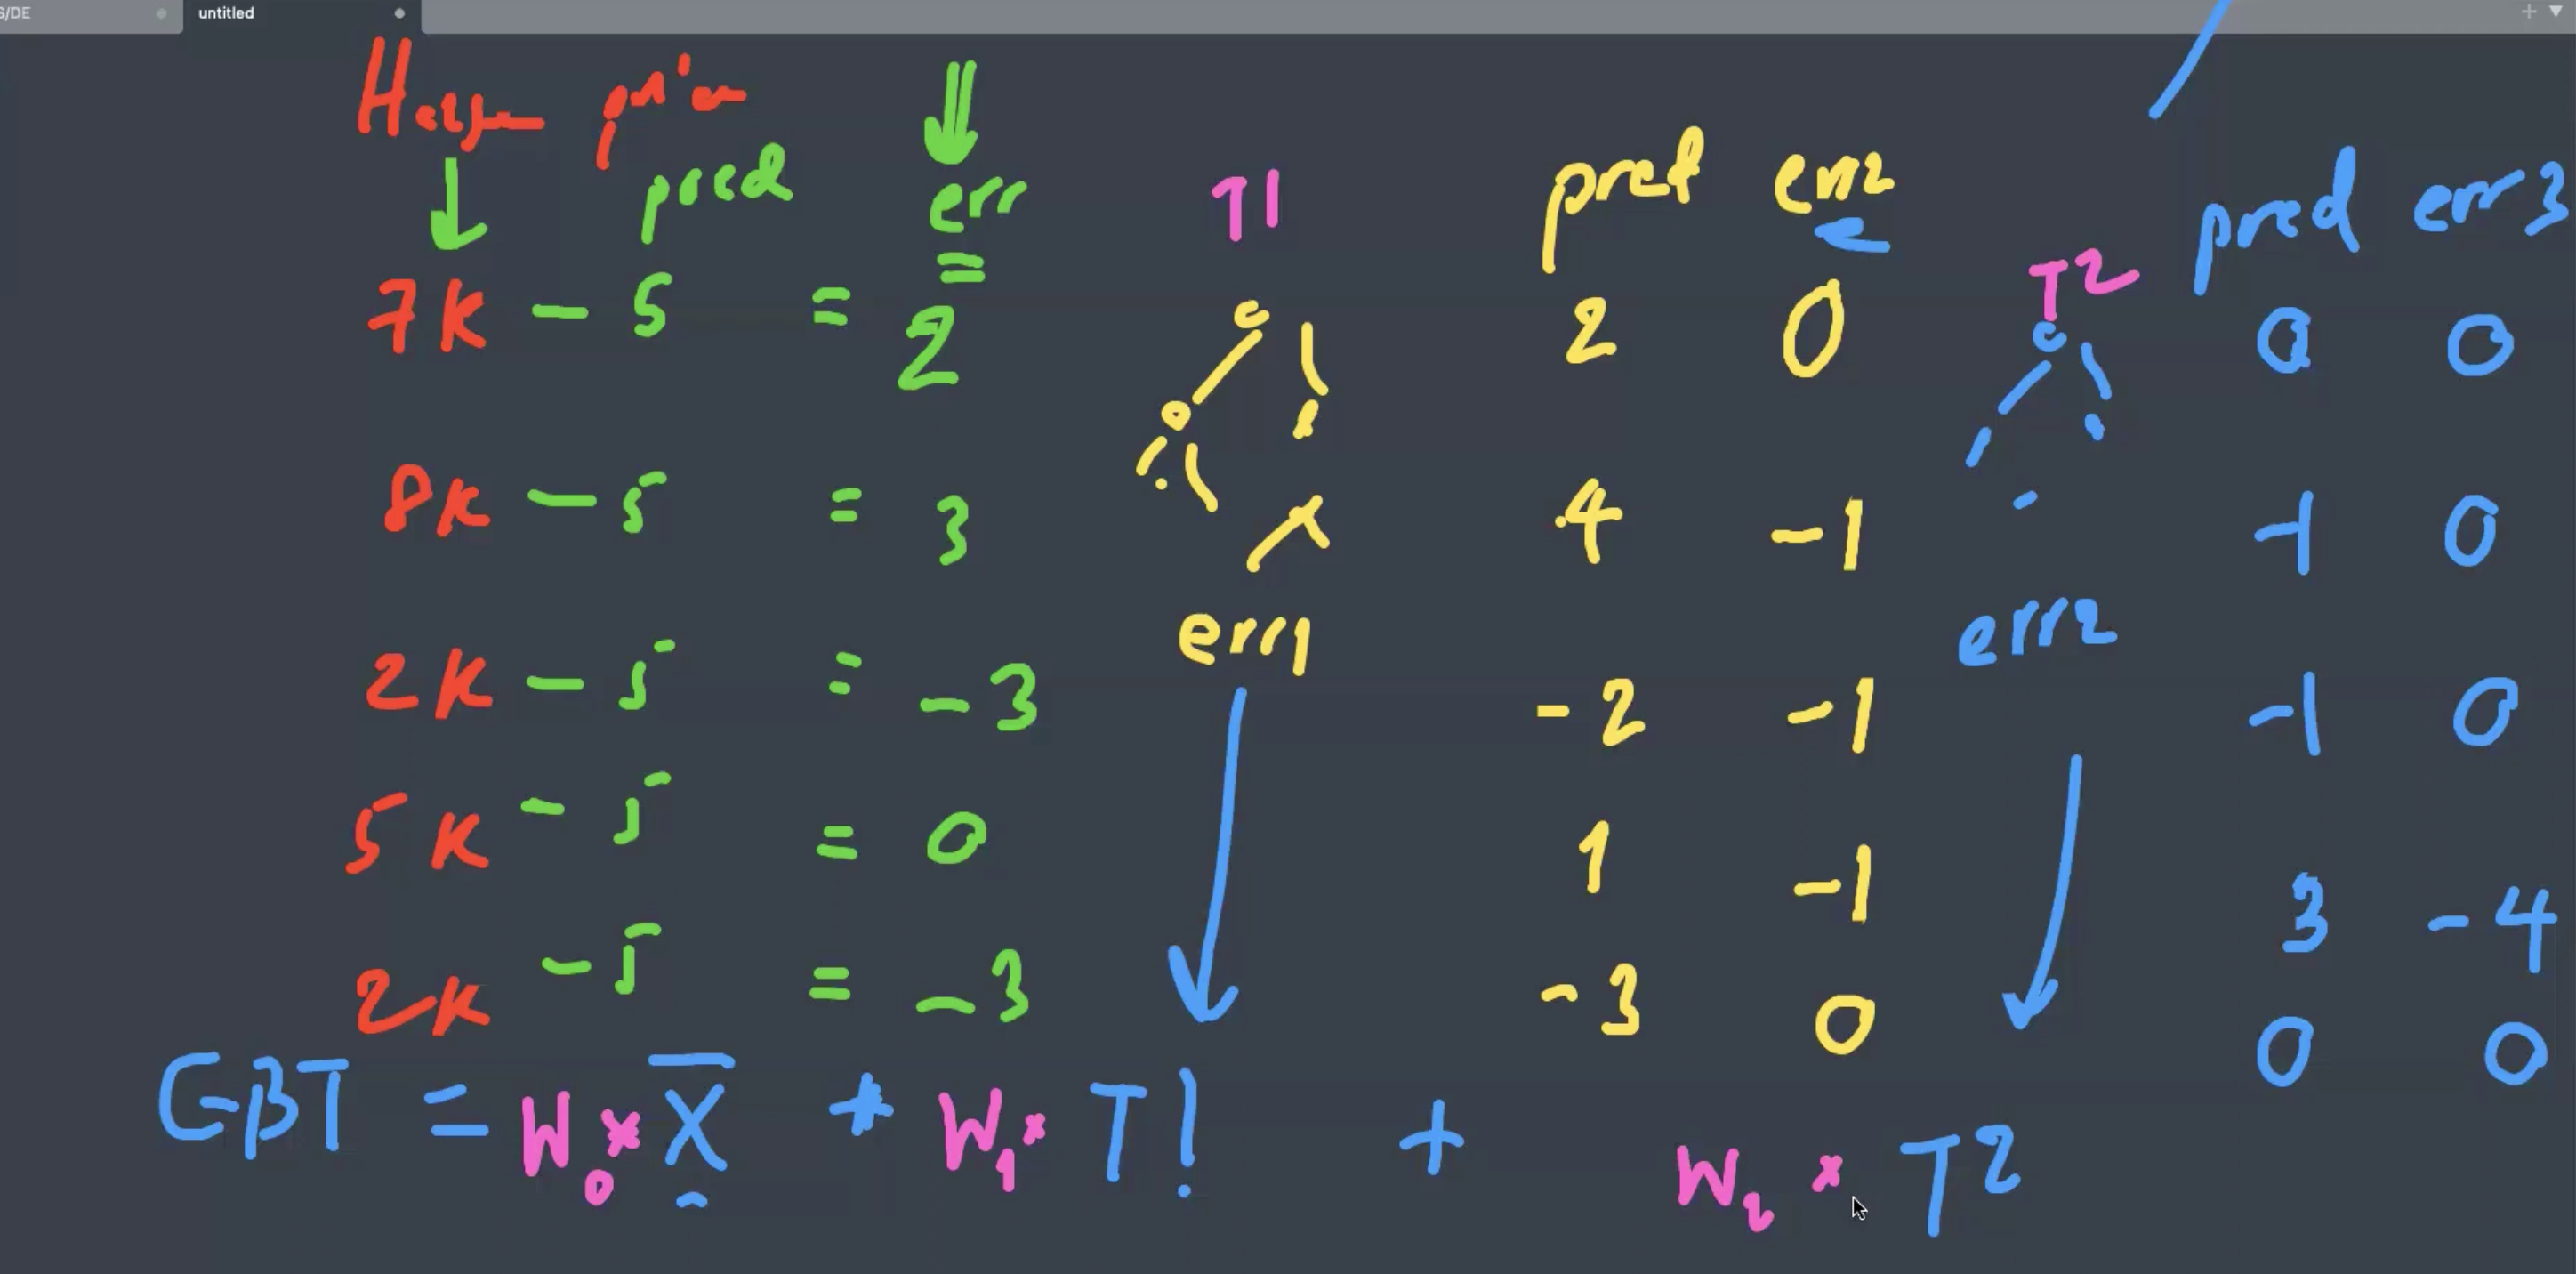 S/DE
untitled
pred err T1 pred err2 T2 pred err3
7K - 5 = 2 2 0 0 0
8K - 5 = 3 4 -1 -1 0
err1 err2
2K - 5 = -3 -2 -1 -1 0
5K - 5 = 0 1 -1 3 -4
2K - 5 = -3 -3 0 0 0
GBT = W0 * X + W1 * T1 + W2 * T2